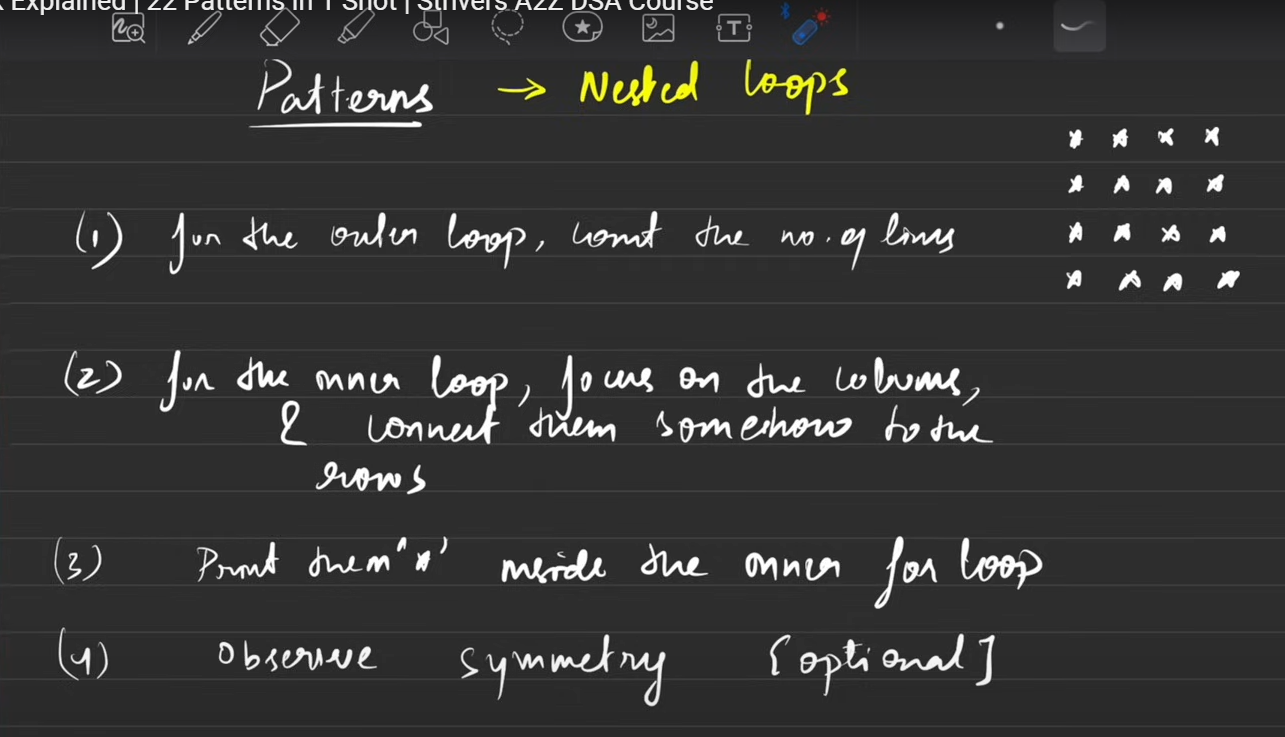 Explained | 22 Patterns in 1 Shot | Strivers A2Z DSA Course
T
Patterns → Nested loops
* * * *
* * * *
(1) for the outer loop, count the no. of lines
* * * *
* * * *
(2) for the inner loop, focus on the columns,
& connect them somehow to the
rows
(3) Print them '*' inside the inner for loop
(4) Observe symmetry [optional]